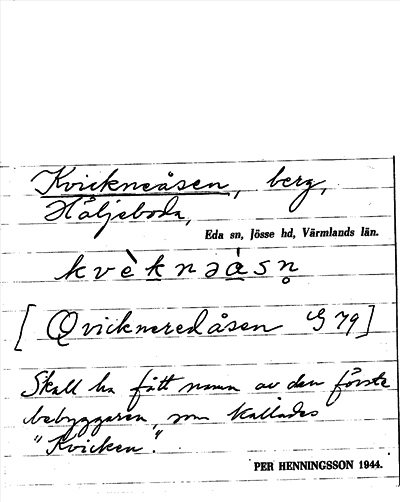 Kvickneåsen, berg,
Håljeboda,
Eda sn, Jösse hd, Värmlands län.
kvèknəåsn̥
[Qvickneredåsen G 79]
Skall ha fått namn av den förste
bebyggaren, som kallades
"Kvicken".
PER HENNINGSSON 1944.